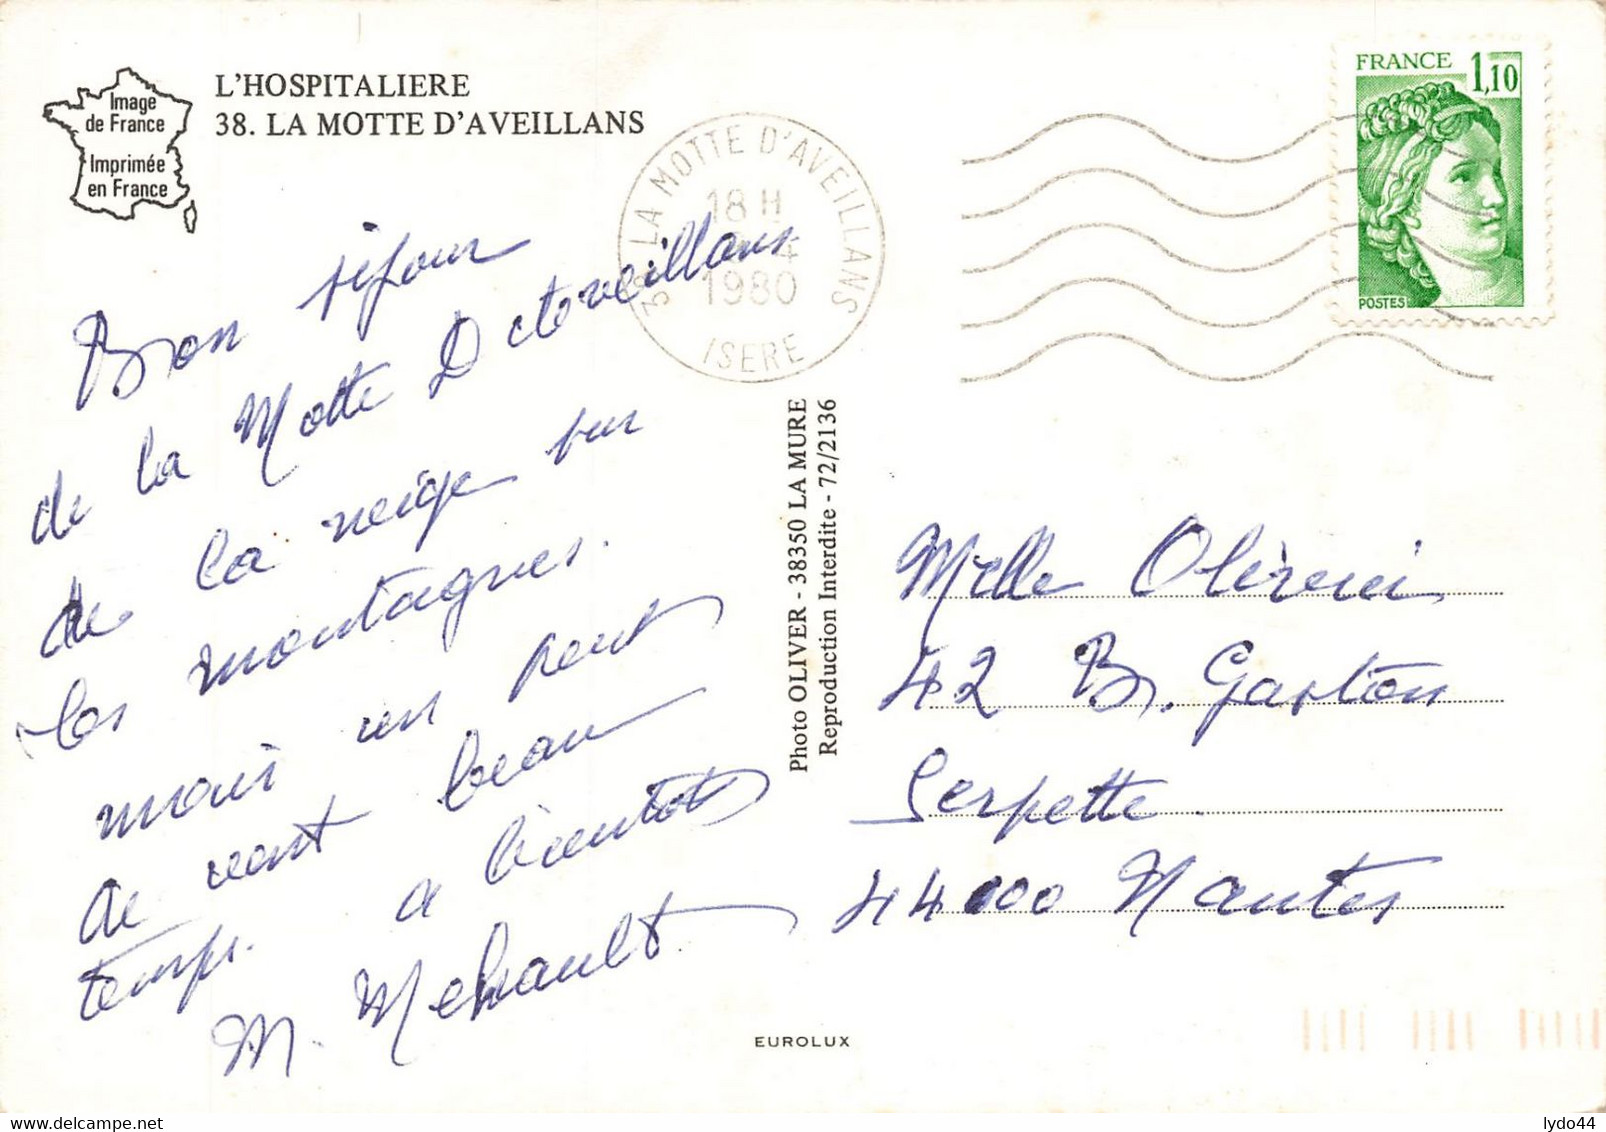 Image
de France
Imprimée
en France
L'HOSPITALIERE
38. LA MOTTE D'AVEILLANS
38 LA MOTTE D'AVEILLANS
18 H
4
1980
ISERE
FRANCE 1,10
POSTES
Bon séjour
de la Motte
de la neige sur
les montagnes.
mais un peut
de vent beau
temps. a bientot
M. Mehault
Photo OLIVER - 38350 LA MURE
Reproduction Interdite - 72/2136
Melle
42 B. Gaston
Serpette
44000 Nantes
EUROLUX
lydo44